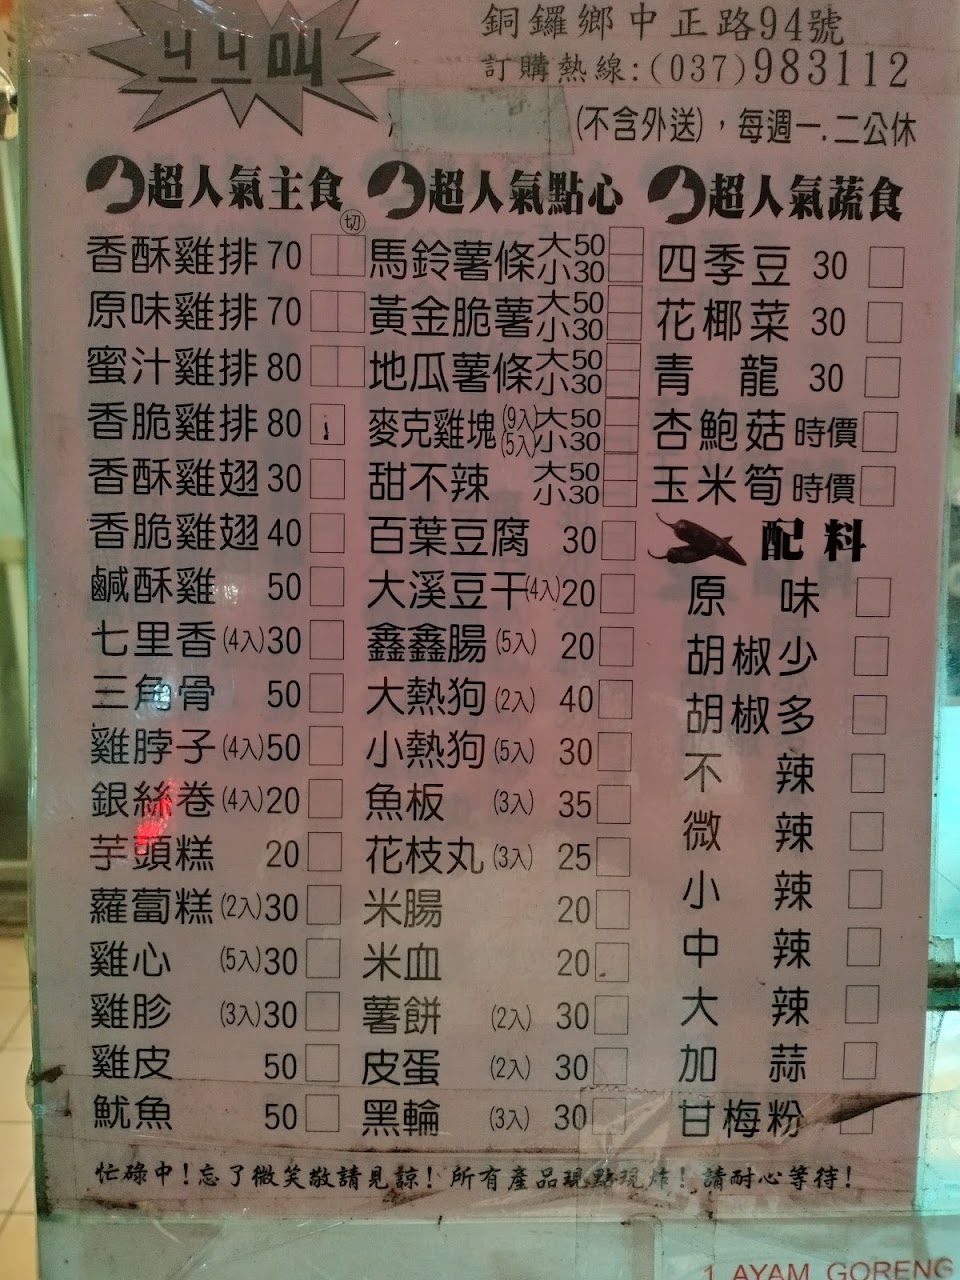 ㄐㄐ叫
銅鑼鄉中正路94號
訂購熱線:(037)983112
(不含外送)，每週一.二公休
超人氣主食
切
香酥雞排 70
原味雞排 70
蜜汁雞排 80
香脆雞排 80
香酥雞翅 30
香脆雞翅 40
鹹酥雞 50
七里香 (4入) 30
三角骨 50
雞脖子 (4入) 50
銀絲卷 (4入) 20
芋頭糕 20
蘿蔔糕 (2入) 30
雞心 (5入) 30
雞胗 (3入) 30
雞皮 50
魷魚 50
超人氣點心
馬鈴薯條 大50 小30
黃金脆薯 大50 小30
地瓜薯條 大50 小30
麥克雞塊 (9入)大50 (5入)小30
甜不辣 大50 小30
百葉豆腐 30
大溪豆干 (4入) 20
鑫鑫腸 (5入) 20
大熱狗 (2入) 40
小熱狗 (5入) 30
魚板 (3入) 35
花枝丸 (3入) 25
米腸 20
米血 20
薯餅 (2入) 30
皮蛋 (2入) 30
黑輪 (3入) 30
超人氣蔬食
四季豆 30
花椰菜 30
青龍 30
杏鮑菇 時價
玉米筍 時價
配料
原味
胡椒少
胡椒多
不辣
微辣
小辣
中辣
大辣
加蒜
甘梅粉
忙碌中!忘了微笑敬請見諒! 所有產品現點現炸! 請耐心等待!
1 AYAM GORENG